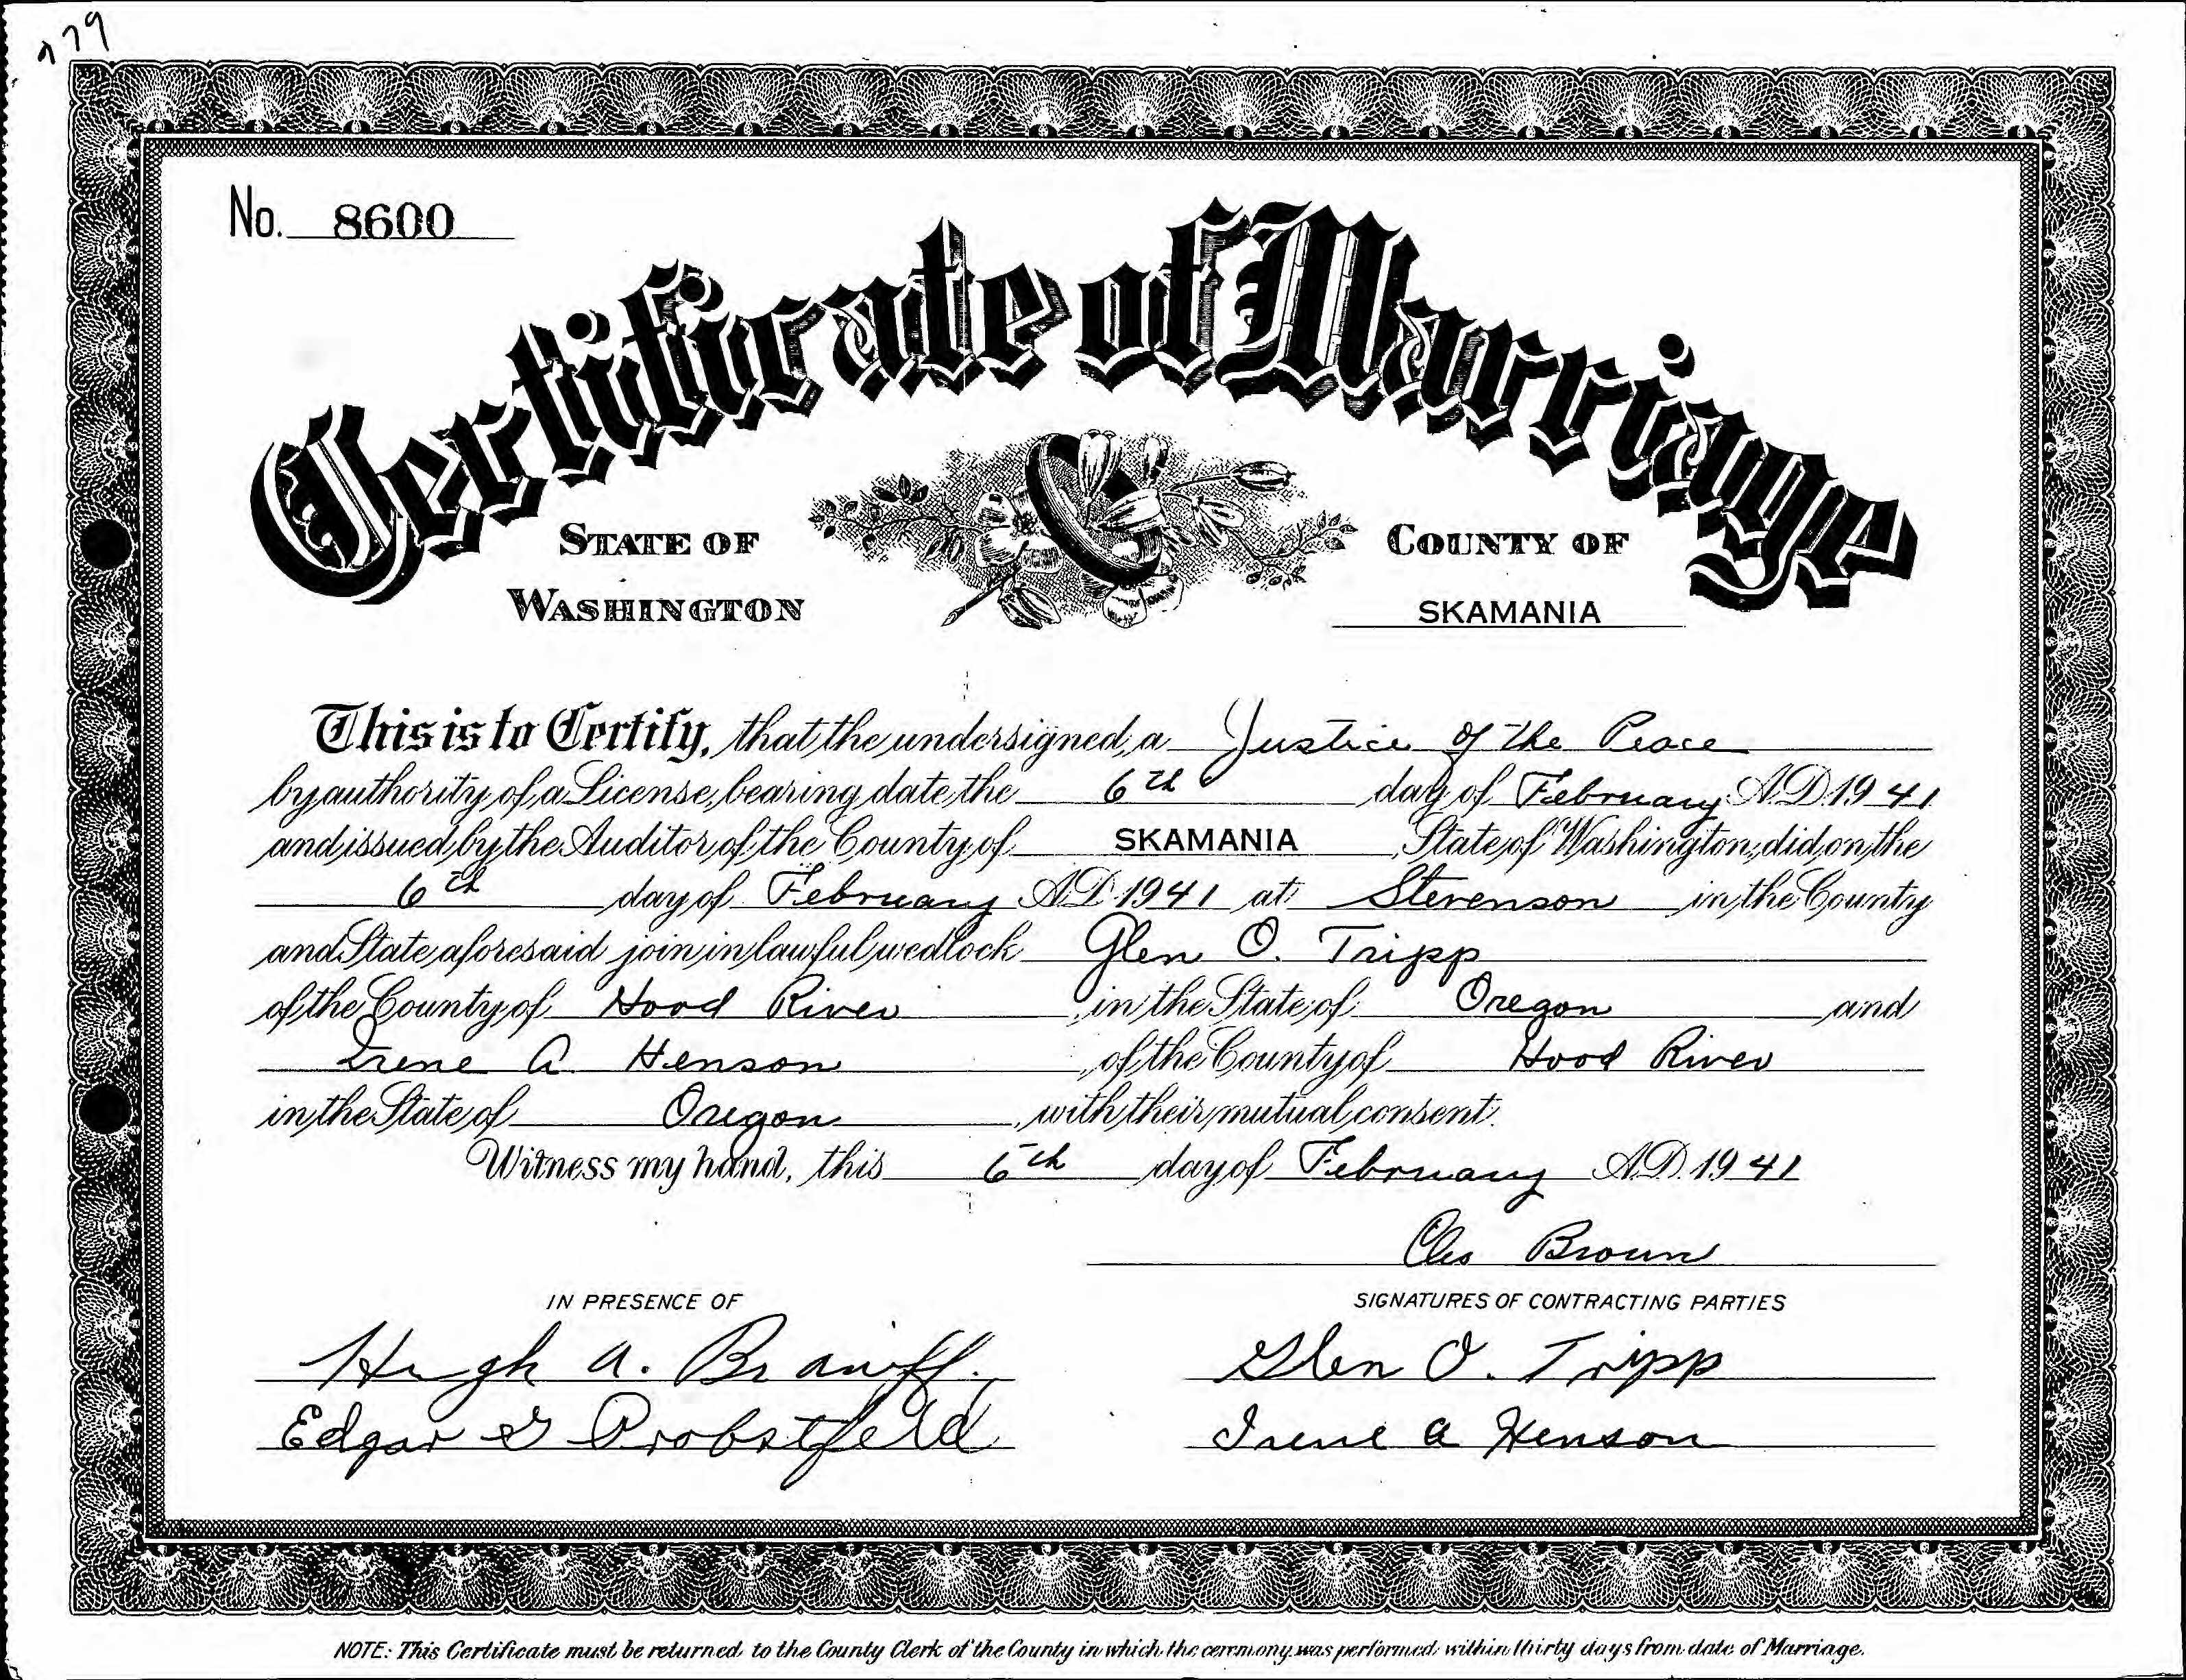 979
No. 8600
Certificate of Marriage
STATE OF WASHINGTON
COUNTY OF SKAMANIA
This is to Certify, that the undersigned, a Justice of the Peace
by authority of a License, bearing date the 6th day of February A.D. 1941
and issued by the Auditor of the County of SKAMANIA, State of Washington, did, on the
6th day of February A.D. 1941 at Stevenson in the County
and State aforesaid join in lawful wedlock Glen O. Tripp
of the County of Hood River, in the State of Oregon and
Irene A. Henson, of the County of Hood River
in the State of Oregon, with their mutual consent.
Witness my hand, this 6th day of February A.D. 1941
Brown
IN PRESENCE OF
SIGNATURES OF CONTRACTING PARTIES
Hugh A. Braniff.
Glen O. Tripp
Edgar Probstfeld
Irene A Henson
NOTE: This Certificate must be returned to the County Clerk of the County in which the ceremony was performed within thirty days from date of Marriage.